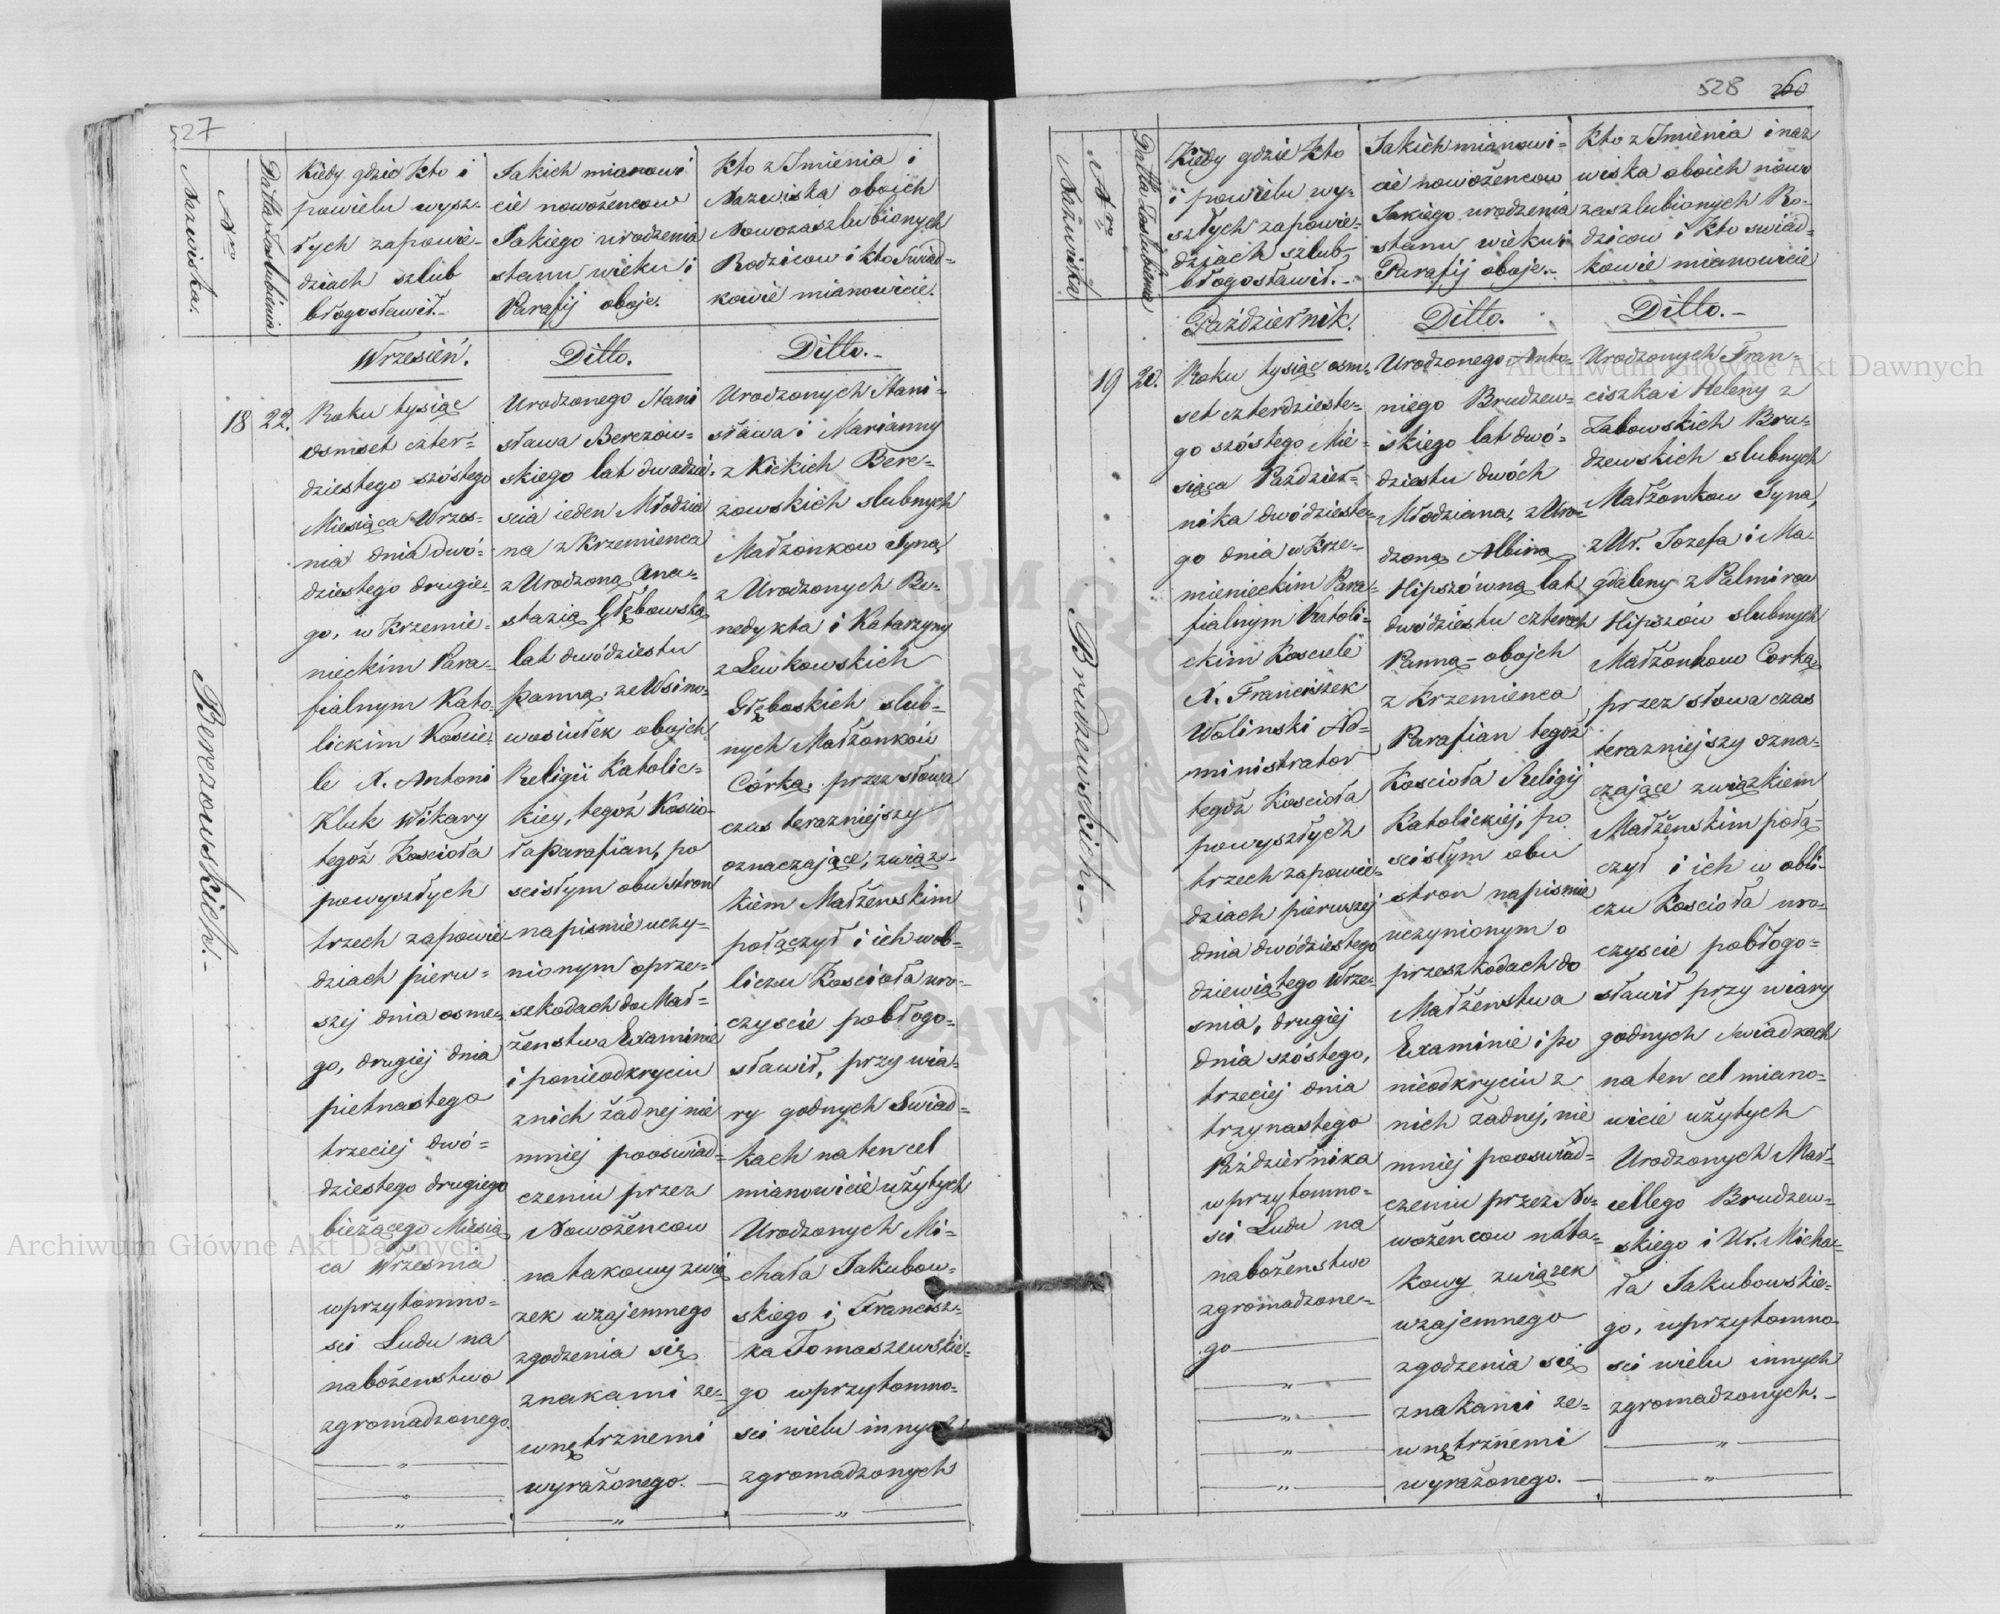 527
Nazwiska.
Nro
Datta Zaslubienia
Kiedy gdzie Kto i
powielu wysz-
łych zapowie-
dziach szlub
błogosławił.-
Jakich mianowi
cie nowożencow
Jakiego urodzenia
stanu wieku i
Parafij oboje.
Kto z Imienia i
Nazwiska obojch
Nowozaszlubionych
Rodzicow i kto Swiad-
kowie mianowicie.
Wrzesień.
Ditto.
Ditto.-
Berezowskich.-
18
22.
Roku tysiąc
osmset czter-
dziestego szóstego
Miesiąca Wrzes-
nia dnia dwó-
dziestego drugie-
go, w Krzemie-
nieckim Para-
fialnym Kato-
lickim Koscie-
le X. Antoni
Kluk Wikary
tegoż Kościoła
powyszłych
trzech zapowie-
dziach pierw-
szej dnia osme-
go, drugiej dnia
pietnastego
trzeciej dwó-
dziestego drugiego
bieżącego Miesią
ca Wrzesnia
wprzytomno-
sci Ludu na
nabożenstwo
zgromadzonego.
Urodzonego Stani
sława Berezow-
skiego lat dwadzie-
scia ieden Młodzia
na z Krzemienca
z Urodzoną Ana-
stazią Głębowską
lat dwódziestu
panną, ze Wsi no-
wosiułek obojch
Religii Katolic-
kiey, tegoż Koscio-
ła parafian, po
scisłym obu stron
napismie uczy-
nionym oprze-
szkodach do Mał-
żenstwa Examinie
i ponieodkryciu
znich żadnej nie
mniej pooswiad-
czeniu przez
Nowożencow
na takowy zwią
zek wzajemnego
zgodzenia się
znakami ze-
wnętrznemi
wyrażonego. —
Urodzonych Stani-
sława i Marianny
z Kickich Bere-
zowskich slubnych
Małżonkow Syna,
z Urodzonych Be-
nedykta i Katarzyny
z Lewkowskich
Głęboskich slub-
nych Małżonków
Córką, przez słowa
czas terazniejszy
oznaczające, związ-
kiem Małżenskim
połączył i ich wob-
liczu Kościoła uro-
czyscie pobłogo-
sławił, przy wia-
ry godnych Swiad-
kach na ten cel
mianowicie użytych
Urodzonych Mi-
chała Jakubow-
skiego i Francisz-
ka Tomaszewskie-
go wprzytomno-
sci wielu innych
zgromadzonych
528 260
Nazwiska
Nro
Datta Zaslubienia
Kiedy gdzie Kto
i powielu wy-
szłych zapowie-
dziach szlub
błogosławił.-
Jakich mianowi-
cie nowożencow
Jakiego urodzenia
stanu wieku i
Parafij oboje.-
Kto z Imienia i naz
wiska oboich nowo
zaszlubionych Ro-
dzicow i kto swiad-
kowie mianowicie
Październik.
Ditto.
Ditto.-
Brudzewskich.-
19
20.
Roku tysiąc osm-
set czterdzieste-
go szóstego Mie-
siąca Paździer-
nika dwódzieste-
go dnia w Krze-
mienieckim Para-
fialnym Katoli-
ckim Kosciele
X. Franciszek
Wolinski Ad-
ministrator
tegoż Kościoła
powyszłych
trzech zapowie-
dziach pierwszej
dnia dwódziestego
dziewiątego Wrze-
snia, drugiej
dnia szóstego,
trzeciej dnia
trzynastego
Października
wprzytomno-
sci Ludu na
nabożenstwo
zgromadzone-
go —
Urodzonego Anto-
niego Brudzew-
skiego lat dwó-
dziestu dwóch
Młodziana, z Uro-
dzoną Albiną
Hipszówną lat
dwódziestu czterech
Panną - obojch
z Krzemienca
Parafian tegoż
Kościoła Religij
Katolickiej, po
scisłym obu
stron napismie
uczynionym o
przeszkodach do
Małżenstwa
Examinie i po
nieodkryciu z
nich żadnej, nie
mniej pooswiad-
czeniu przez No-
wożencow nata-
kowy związek
wzajemnego
zgodzenia się
znakami ze-
wnętrznemi
wyrażonego. —
Urodzonych Fran-
ciszka i Heleny z
Żabowskich Bru-
dzewskich slubnych
Małżonkow Syna,
z Ur. Jozefa i Ma-
gdaleny z Palmirow
Hipszów slubnych
Małżonkow Corką
przez słowa czas
terazniejszy ozna-
czające związkiem
Małżenskim połą-
czył i ich w obli-
czu Kościoła uro-
czyscie pobłogo-
sławił przy wiary
godnych swiadkach
na ten cel miano-
wicie użytych
Urodzonych Mar-
cellego Brudzew-
skiego i Ur. Micha-
ła Jakubowskie-
go, wprzytomno-
sci wielu innych
zgromadzonych.-
Archiwum Główne Akt Dawnych
Archiwum Główne Akt Dawnych